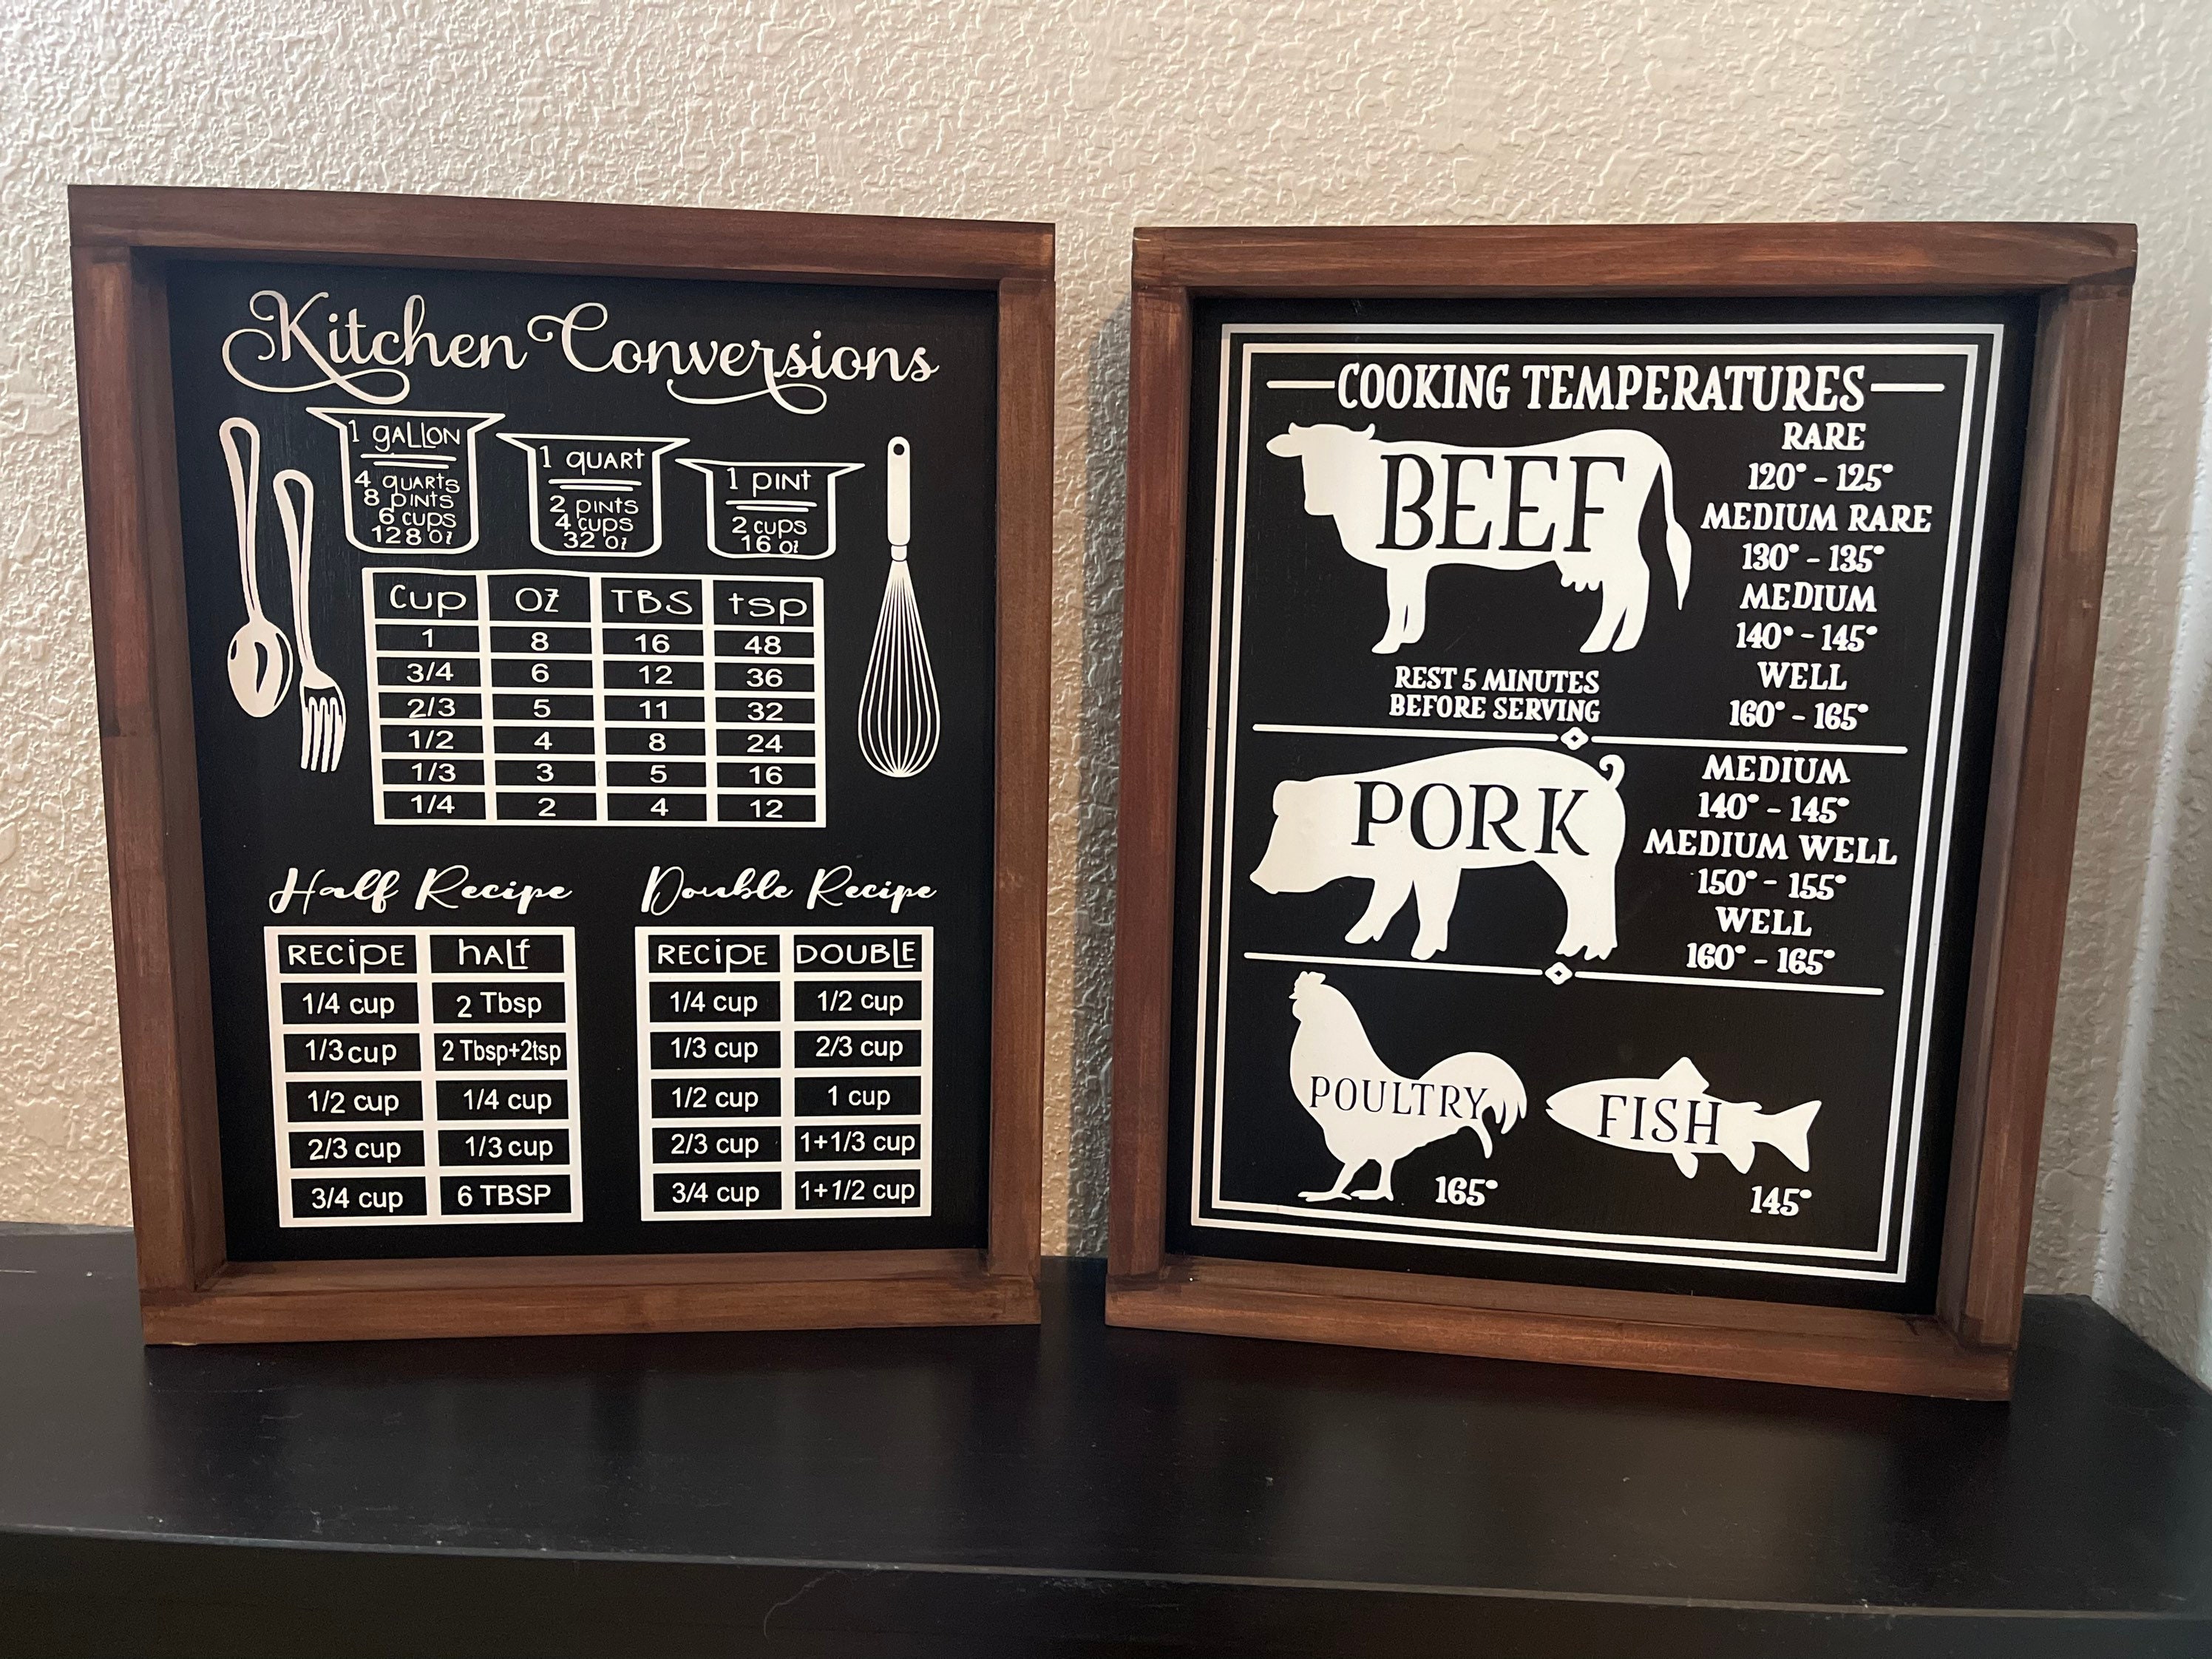 Kitchen Conversions
1 gallon
4 quarts
8 pints
6 cups
128 oz
1 quart
2 pints
4 cups
32 oz
1 pint
2 cups
16 oz
Cup OZ TBS tsp
1 8 16 48
3/4 6 12 36
2/3 5 11 32
1/2 4 8 24
1/3 3 5 16
1/4 2 4 12
Half Recipe
RECipE hALf
1/4 cup 2 Tbsp
1/3 cup 2 Tbsp+2tsp
1/2 cup 1/4 cup
2/3 cup 1/3 cup
3/4 cup 6 TBSP
Double Recipe
RECipE DOUBLE
1/4 cup 1/2 cup
1/3 cup 2/3 cup
1/2 cup 1 cup
2/3 cup 1+1/3 cup
3/4 cup 1+1/2 cup
COOKING TEMPERATURES
BEEF
RARE
120° - 125°
MEDIUM RARE
130° - 135°
MEDIUM
140° - 145°
WELL
160° - 165°
REST 5 MINUTES
BEFORE SERVING
PORK
MEDIUM
140° - 145°
MEDIUM WELL
150° - 155°
WELL
160° - 165°
POULTRY
165°
FISH
145°